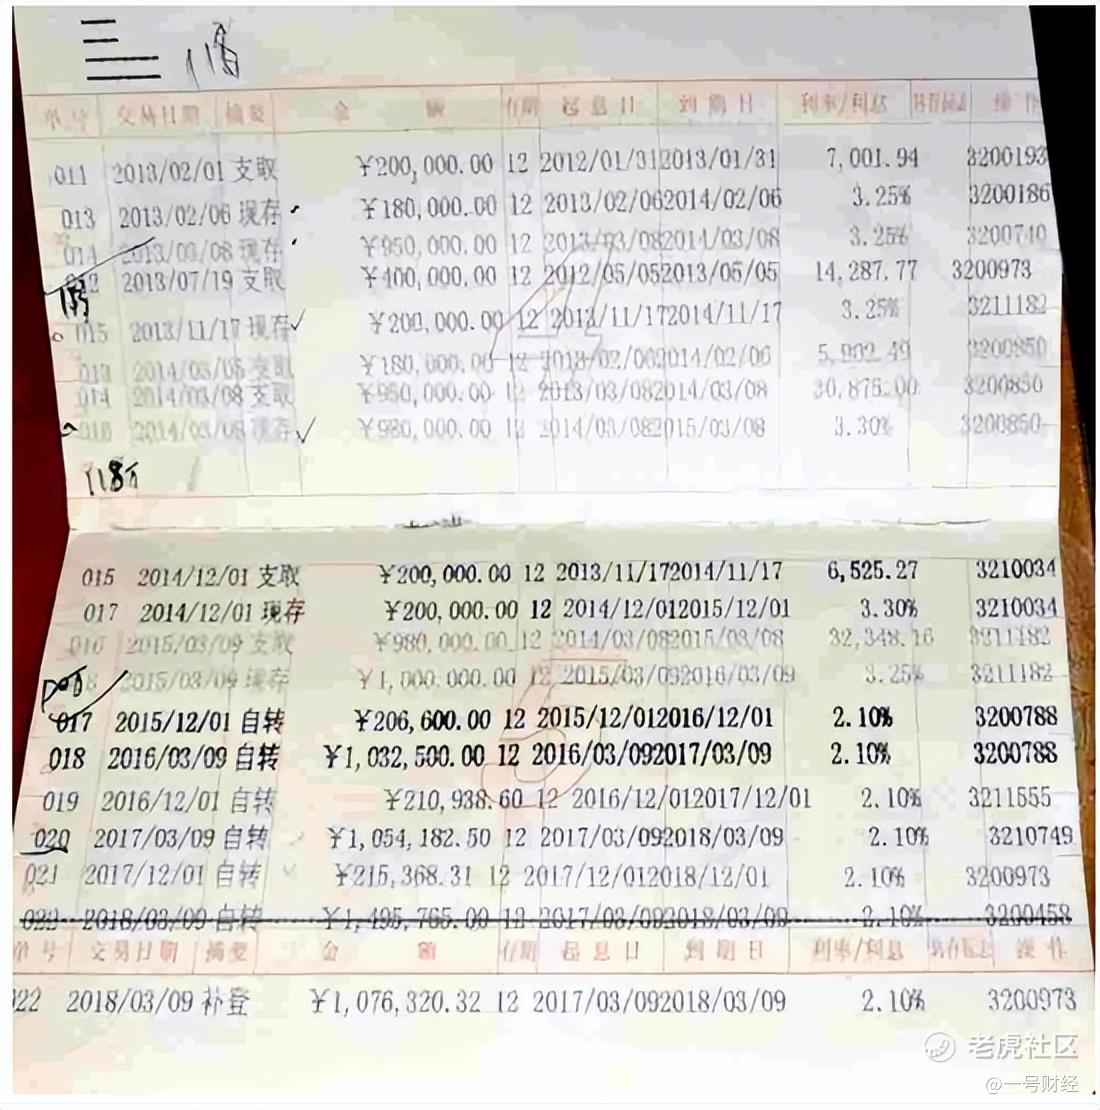 单号 交易日期 摘要 金 额 存期 起息日 到期日 利率/利息 操作
011 2013/02/01 支取 ¥200,000.00 12 2012/01/31 2013/01/31 7,001.94 3200193
013 2013/02/06 现存 ¥180,000.00 12 2013/02/06 2014/02/06 3.25% 3200186
014 2013/03/08 现存 ¥950,000.00 12 2013/03/08 2014/03/08 3.25% 3200740
012 2013/07/19 支取 ¥400,000.00 12 2012/05/05 2013/05/05 14,287.77 3200973
015 2013/11/17 现存 ¥200,000.00 12 2013/11/17 2014/11/17 3.25% 3211182
013 2014/03/08 支取 ¥180,000.00 12 2013/02/06 2014/02/06 5,902.49 3200850
014 2014/03/08 支取 ¥950,000.00 12 2013/03/08 2014/03/08 30,875.00 3200850
016 2014/03/08 现存 ¥980,000.00 12 2014/03/08 2015/03/08 3.30% 3200850
118万
015 2014/12/01 支取 ¥200,000.00 12 2013/11/17 2014/11/17 6,525.27 3210034
017 2014/12/01 现存 ¥200,000.00 12 2014/12/01 2015/12/01 3.30% 3210034
016 2015/03/09 支取 ¥980,000.00 12 2014/03/08 2015/03/08 32,348.16 3211182
8 2015/03/09 现存 ¥1,000,000.00 12 2015/03/09 2016/03/09 3.25% 3211182
017 2015/12/01 自转 ¥206,600.00 12 2015/12/01 2016/12/01 2.10% 3200788
018 2016/03/09 自转 ¥1,032,500.00 12 2016/03/09 2017/03/09 2.10% 3200788
019 2016/12/01 自转 ¥210,938.60 12 2016/12/01 2017/12/01 2.10% 3211555
020 2017/03/09 自转 ¥1,054,182.50 12 2017/03/09 2018/03/09 2.10% 3210749
021 2017/12/01 自转 ¥215,368.31 12 2017/12/01 2018/12/01 2.10% 3200973
022 2018/03/09 自转 ¥1,495,765.00 12 2017/03/09 2018/03/09 2.10% 3200458
单号 交易日期 摘要 金 额 存期 起息日 到期日 利率/利息 操作
022 2018/03/09 补登 ¥1,076,320.32 12 2017/03/09 2018/03/09 2.10% 3200973
老虎社区
@一号财经